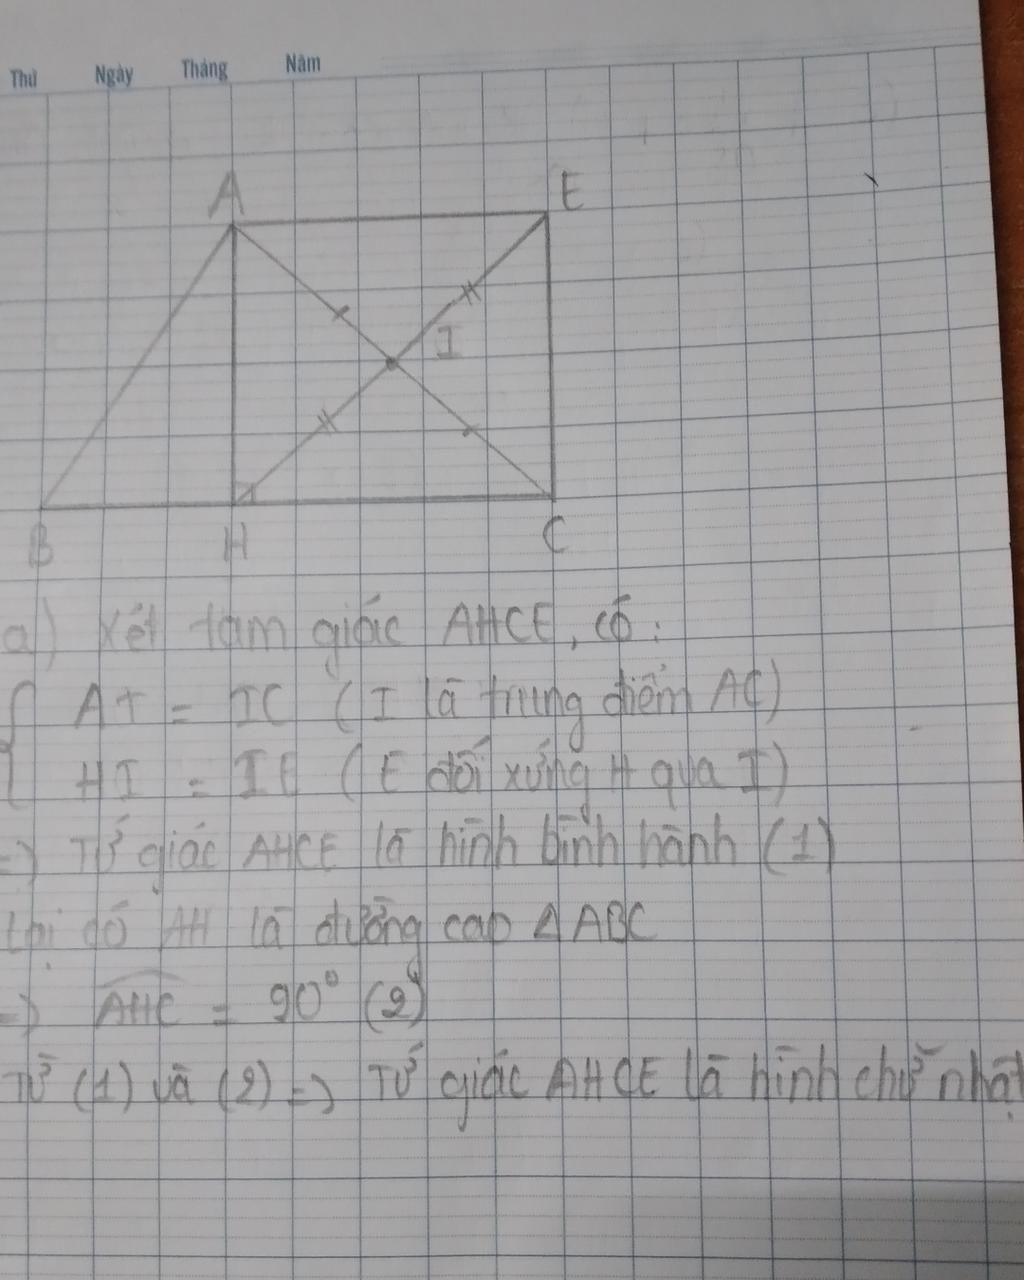 Thứ Ngày Tháng Năm
A E
I
B H C
a) Xét tam giác AHCE, có:
AI = IC (I là trung điểm AC)
HI = IE (E đối xứng H qua I)
=> Tứ giác AHCE là hình bình hành (1)
đó AH là đường cao Δ ABC
=> AHC = 90° (2)
Từ (1) và (2) => Tứ giác AHCE là hình chữ nhật